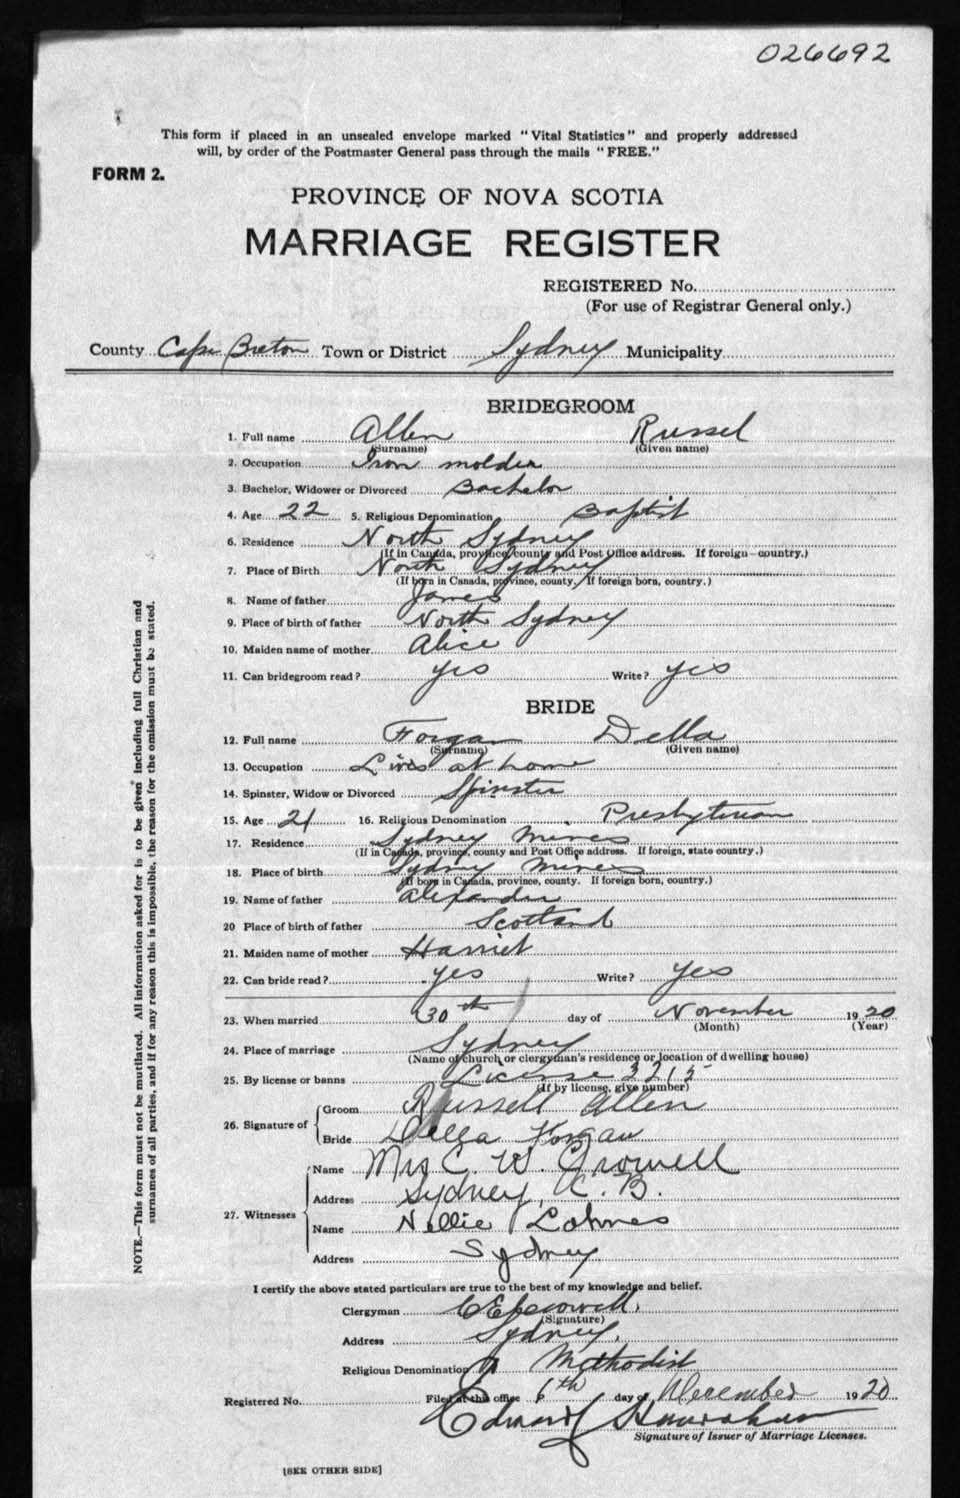 026692
This form if placed in an unsealed envelope marked "Vital Statistics" and properly addressed
will, by order of the Postmaster General pass through the mails "FREE."
FORM 2.
PROVINCE OF NOVA SCOTIA
MARRIAGE REGISTER
REGISTERED No.
(For use of Registrar General only.)
County Cape Breton Town or District Sydney Municipality
BRIDEGROOM
1. Full name Allen Russel
(Surname) (Given name)
2. Occupation Iron molder
3. Bachelor, Widower or Divorced Bachelor
4. Age 22 5. Religious Denomination Baptist
6. Residence North Sydney
(If in Canada, province, county and Post Office address. If foreign—country.)
7. Place of Birth North Sydney
(If born in Canada, province, county. If foreign born, country.)
8. Name of father James
9. Place of birth of father North Sydney
10. Maiden name of mother Alice
11. Can bridegroom read? yes Write? yes
BRIDE
12. Full name Forgan Della
(Surname) (Given name)
13. Occupation Lives at home
14. Spinster, Widow or Divorced Spinster
15. Age 21 16. Religious Denomination Presbyterian
17. Residence Sydney Mines
(If in Canada, province, county and Post Office address. If foreign, state country.)
18. Place of birth Sydney Mines
(If born in Canada, province, county. If foreign born, country.)
19. Name of father Alexander
20 Place of birth of father Scotland
21. Maiden name of mother Harriet
22. Can bride read? yes Write? yes
23. When married 30th day of November 1920
(Month) (Year)
24. Place of marriage Sydney
(Name of church or clergyman's residence or location of dwelling house)
25. By license or banns License 3215
(If by license, give number)
26. Signature of Groom Russell Allen
Bride Della Forgan
27. Witnesses Name Mrs C. W. Crowell
Address Sydney, C. B.
Name Nellie Lohnes
Address Sydney
I certify the above stated particulars are true to the best of my knowledge and belief.
Clergyman Crowell.
(Signature)
Address Sydney.
Religious Denomination Methodist
Registered No. Filed at this office 6th day of December 1920
Edward
Signature of Issuer of Marriage Licenses.
[SEE OTHER SIDE]
NOTE.—This form must not be mutilated. All information asked for is to be given including full Christian and
surnames of all parties, and if for any reason this is impossible, the reason for the omission must be stated.